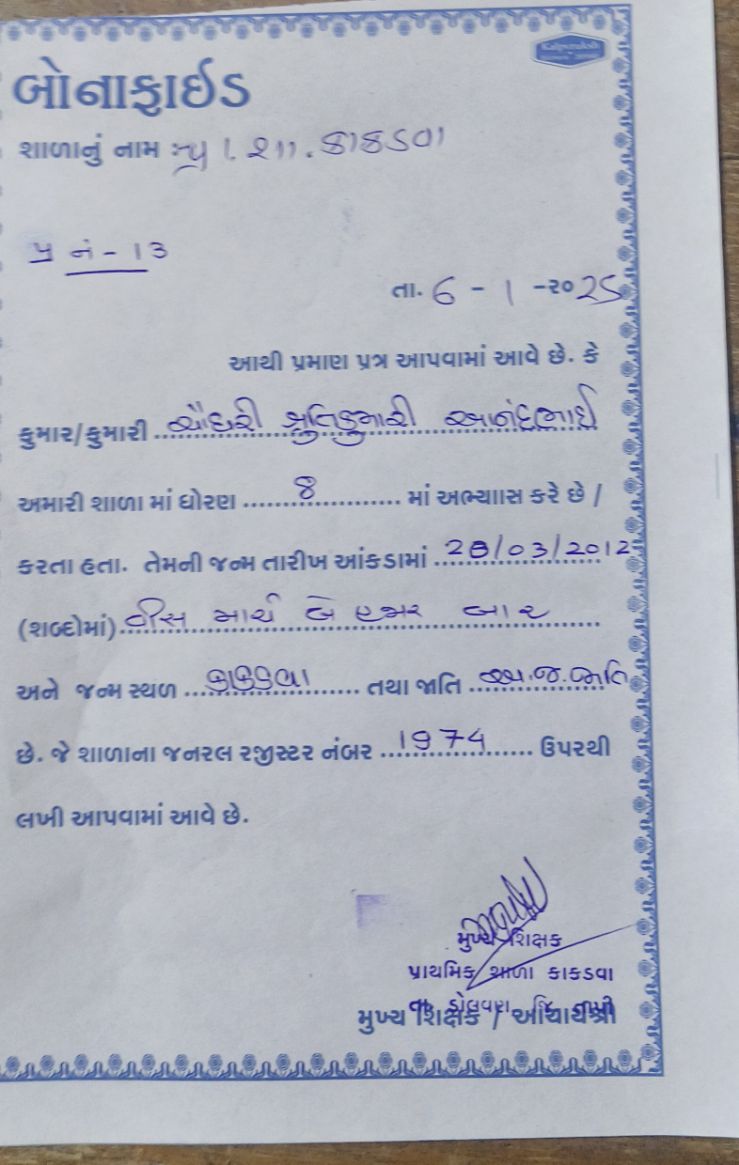 Kalpvruksh
બોનાફાઈડ
શાળાનું નામ પ્રા. શા. કાકડવા
પ્ર નં - 13
તા. 6 - 1 -૨૦25
આથી પ્રમાણ પત્ર આપવામાં આવે છે. કે
કુમાર/કુમારી ચૌધરી શ્રુતિકુમારી આનંદભાઈ
અમારી શાળા માં ધોરણ 8 માં અભ્યાસ કરે છે /
કરતા હતા. તેમની જન્મ તારીખ આંકડામાં 20/03/2012
(શબ્દોમાં) વીસ માર્ચ બે હજાર બાર
અને જન્મ સ્થળ કાકડવા તથા જાતિ અનુ.જ.જાતિ
છે. જે શાળાના જનરલ રજીસ્ટર નંબર 1974 ઉપરથી
લખી આપવામાં આવે છે.
મુખ્ય શિક્ષક
પ્રાથમિક શાળા કાકડવા
તા. ડોલવણ જિ. તાપી
મુખ્ય શિક્ષક / આચાર્યશ્રી